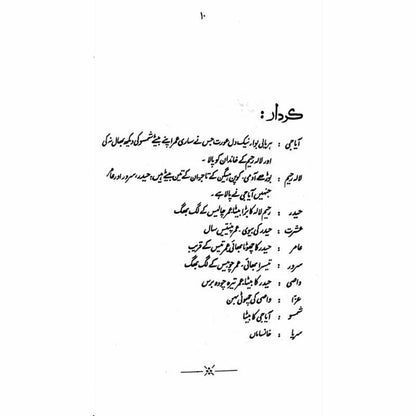 ۱۰
کردار :
آیا جی : ہریالی بوا، نیک دل عورت جس نے ساری عمر اپنے بیٹے شمسو کی دیکھ بھال نہ کی
اور لالہ رحیم کے خاندان کو پالا۔
لالہ رحیم : بوڑھے آدمی، کوپن ہیگن کے تاجر ان کے تین بیٹے ہیں، حیدر، سرور اور عامر
جنہیں آیا جی نے پالا ہے۔
حیدر : رحیم لالہ کا بڑا بیٹا، عمر چالیس کے لگ بھگ
عشرت : حیدر کی بیوی۔ عمر پنتیس سال
عامر : حیدر کا چھوٹا بھائی، عمر تیس کے قریب
سرور : تیسرا بھائی۔ عمر چوبیس کے لگ بھگ
واصی : حیدر کا بیٹا، عمر تیرہ چودہ برس
عذرا : واصی کی چھوٹی بہن
شمسو : آیا جی کا بیٹا
خانساماں